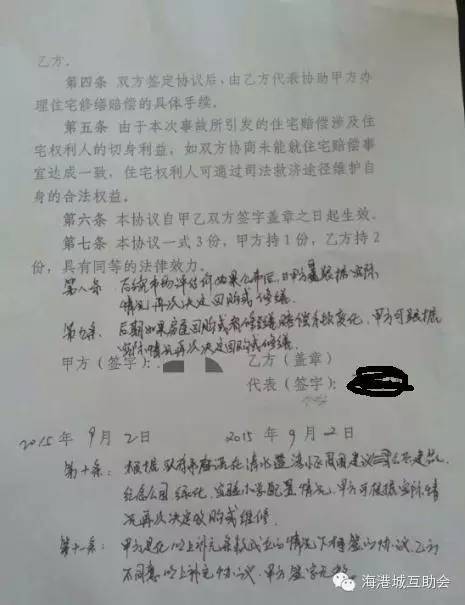 乙方。
第四条 双方签定协议后、由乙方代表协助甲方办
理住宅修缮赔偿的具体手续。
第五条 由于本次事故所引发的住宅赔偿涉及住
宅权利人的切身利益，如双方协商未能就住宅赔偿事
宜达成一致，住宅权利人可通过司法救济途径维护自
身的合法权益。
第六条 本协议自甲乙双方签字盖章之日起生效。
第七条 本协议一式3份，甲方持1份，乙方持2
份，具有同等的法律效力。
第八条 后续 评估 如果 甲方 根据实际
情况再次决定回购或修缮。
第九条、后期如果房屋回购或者修缮赔偿 变化，甲方可根据
实际情况再次决定回购或修缮。
甲方（签字）： 乙方（盖章）
代表（签字）：
2015年9月2日 2015年9月2日
第十条：根据 在清水蓝湾小区周围建
纪念公园、绿化、实验小学配置情况，甲方可根据实际情
况再次决定 或维修。
第十一条：甲方是在以上补充条款成立的情况下 签的协议，乙方
不同意以上补充协议，甲方签字无效。
海港城互助会